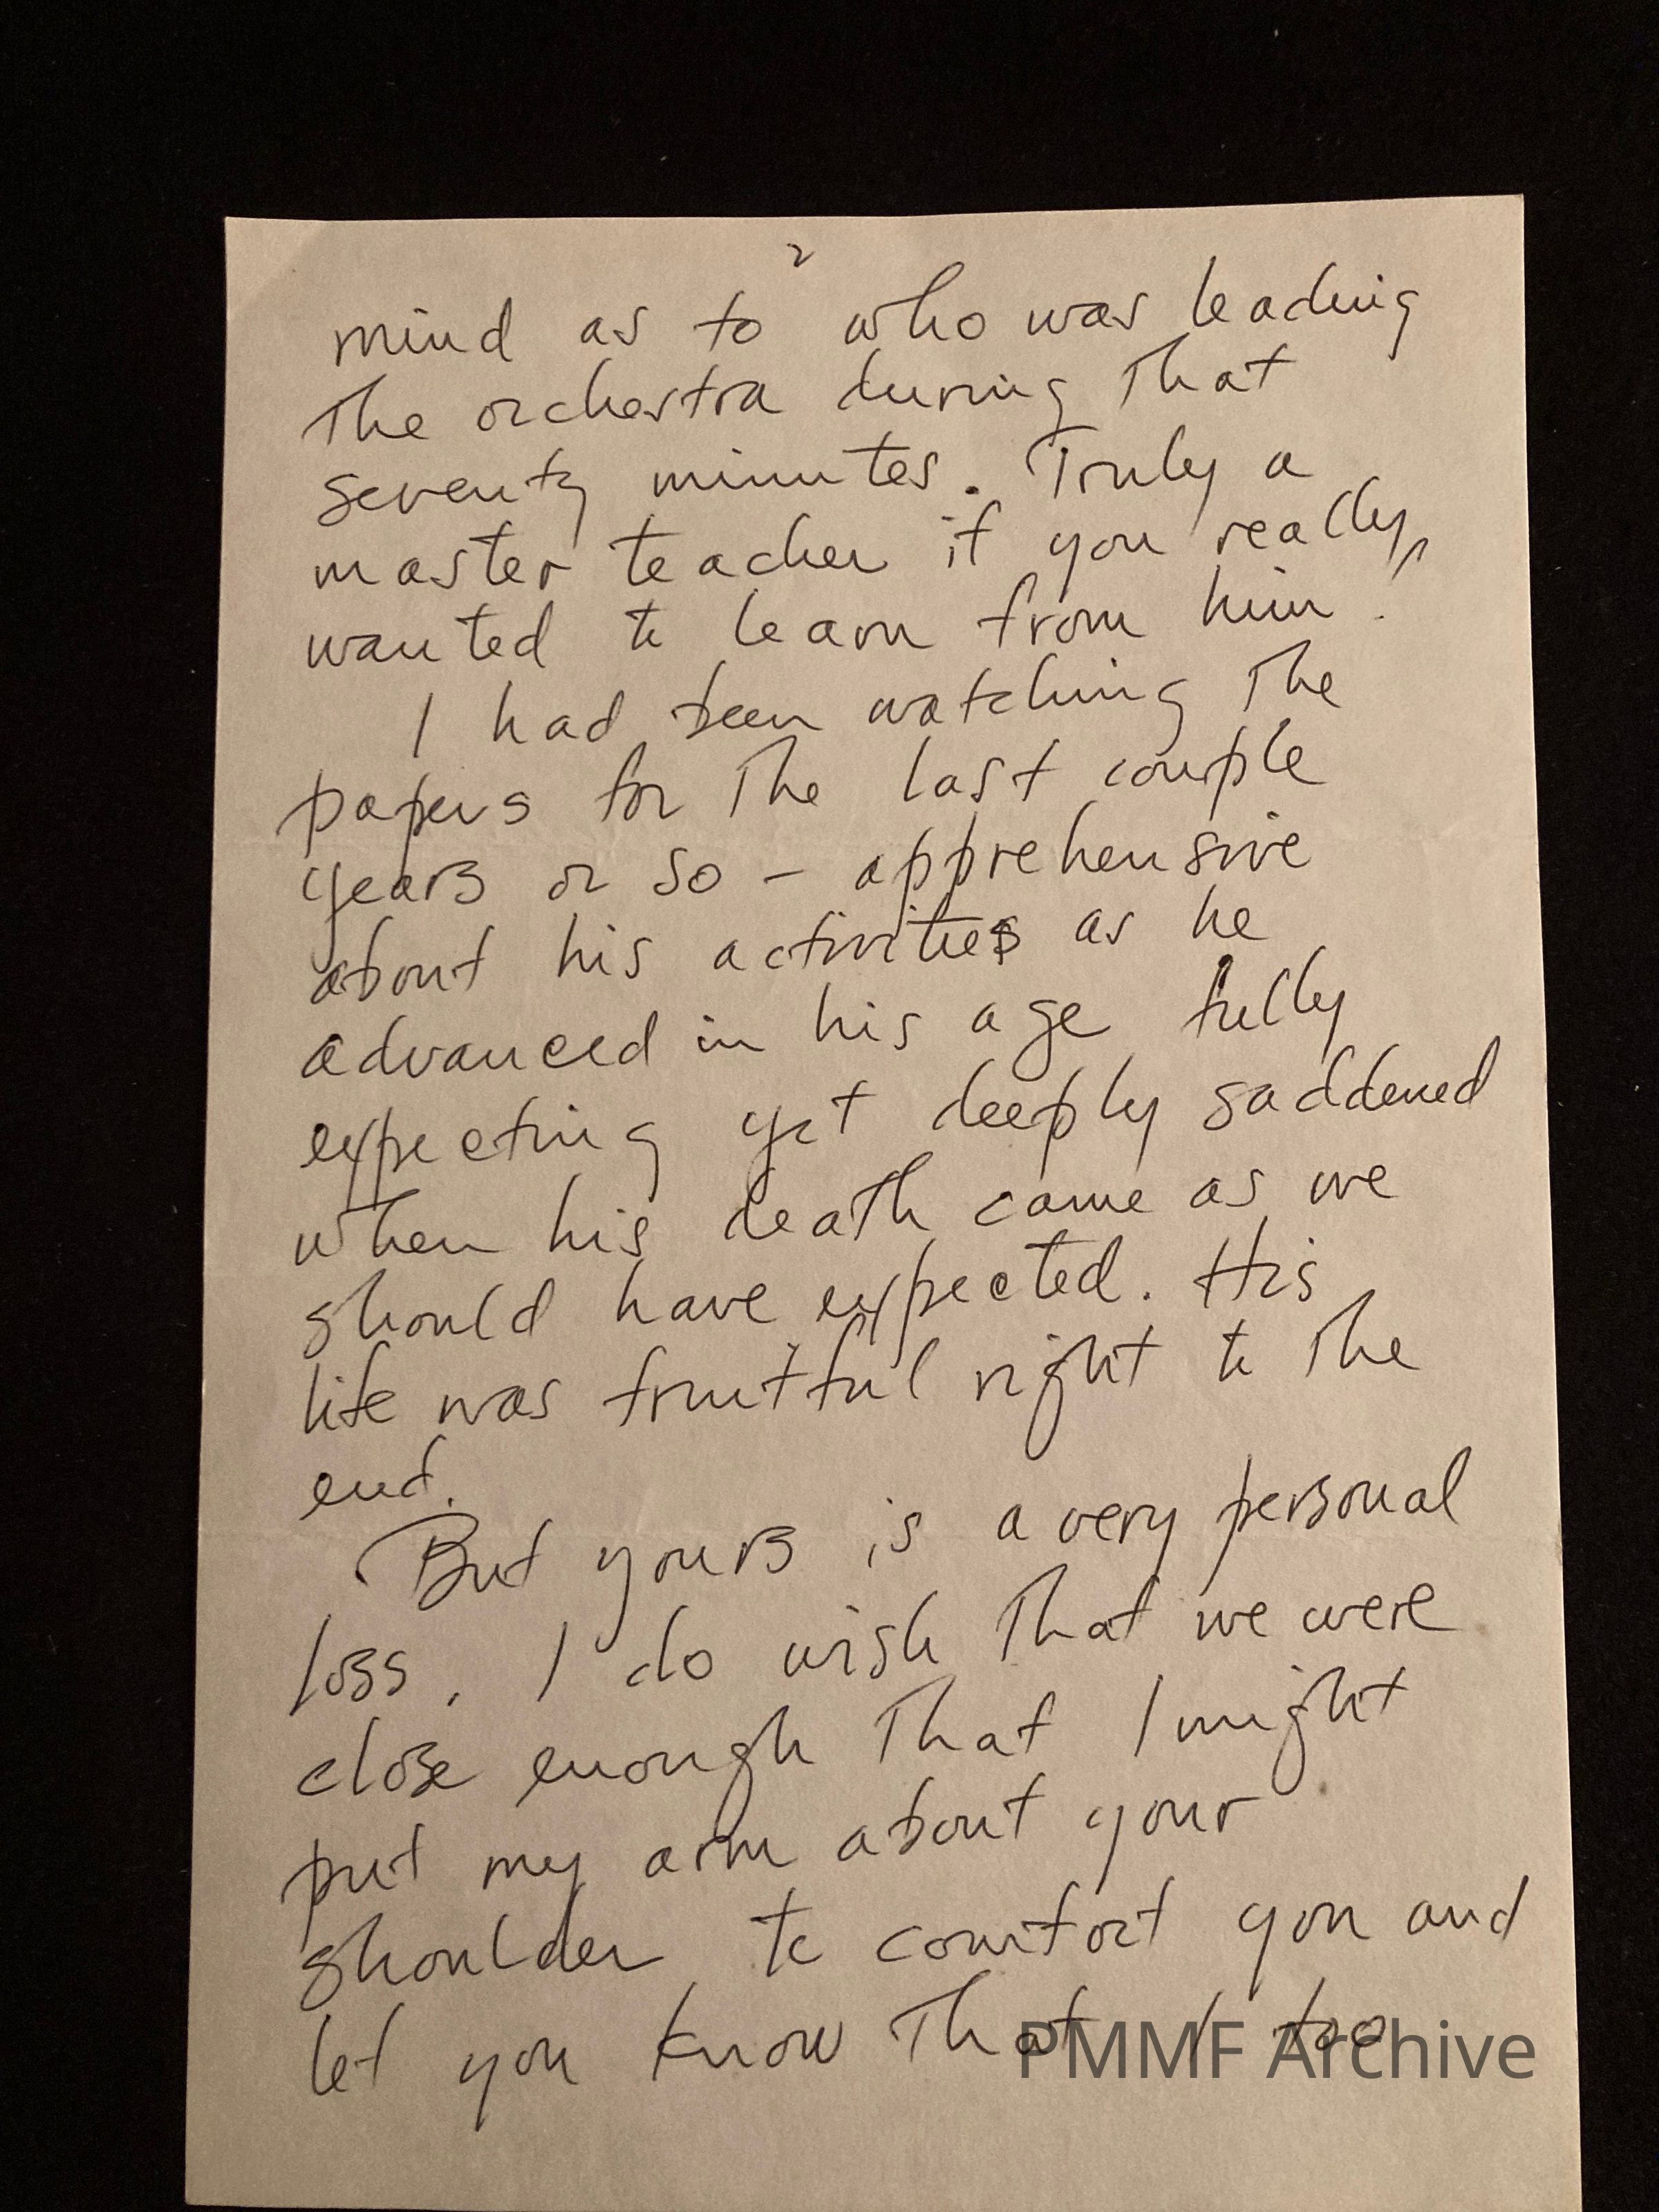 2
mind as to who was leading
The orchestra during That
seventy minutes. Truly a
master teacher if you really
wanted to learn from him.
I had been watching The
papers for The last couple
years or so – apprehensive
about his activities as he
advanced in his age fully
expecting yet deeply saddened
when his death came as we
should have expected. His
life was fruitful right to The
end.
But yours is a very personal
loss. I do wish That we were
close enough That I might
put my arm about your
shoulder to comfort you and
let you know That I too
PMMF Archive